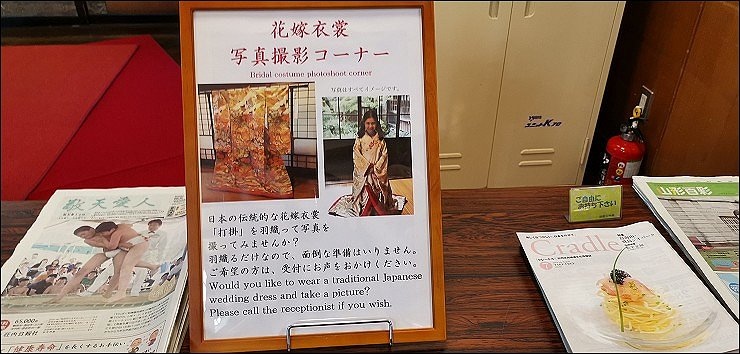 花嫁衣裳
写真撮影コーナー
Bridal costume photoshoot corner
写真はすべてイメージです。
日本の伝統的な花嫁衣裳
「打掛」を羽織って写真を
撮ってみませんか?
羽織るだけなので、面倒な準備はいりません。
ご希望の方は、受付にお声をおかけください。
Would you like to wear a traditional Japanese
wedding dress and take a picture?
Please call the receptionist if you wish.
敬天愛人
65,000
荘内日報社
「健康寿命」を長くするお手伝い
ユニットK70
ご自由に
お持ち下さい
Cradle
山形百彩